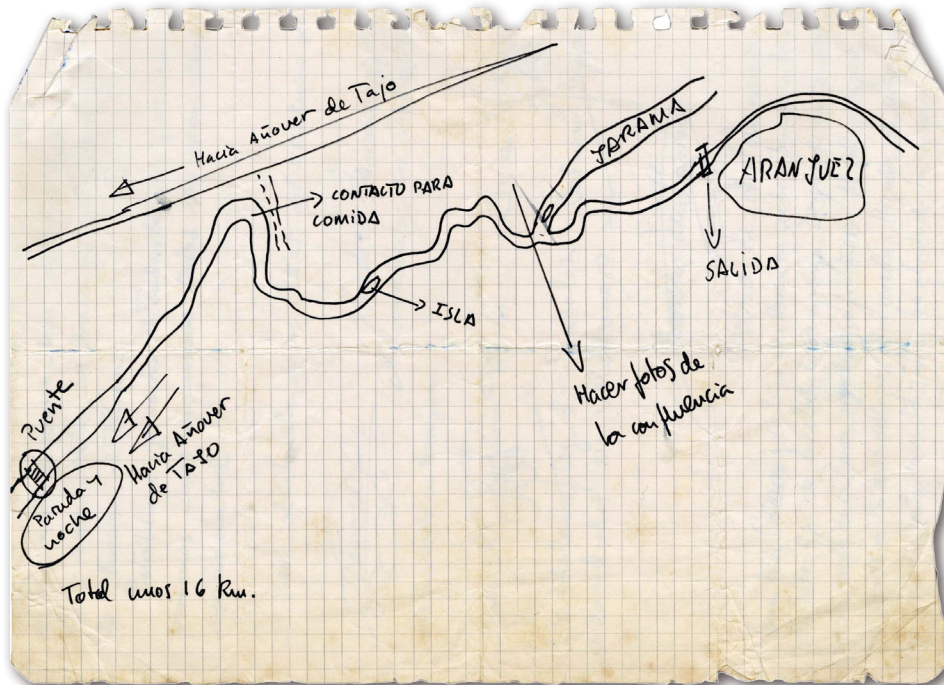 Hacia Añover de Tajo
CONTACTO PARA
COMIDA
JARAMA
ARANJUEZ
SALIDA
ISLA
Hacer fotos de
la confluencia
Puente
Hacia Añover
de TAJO
Parada y
noche
Total unos 16 km.